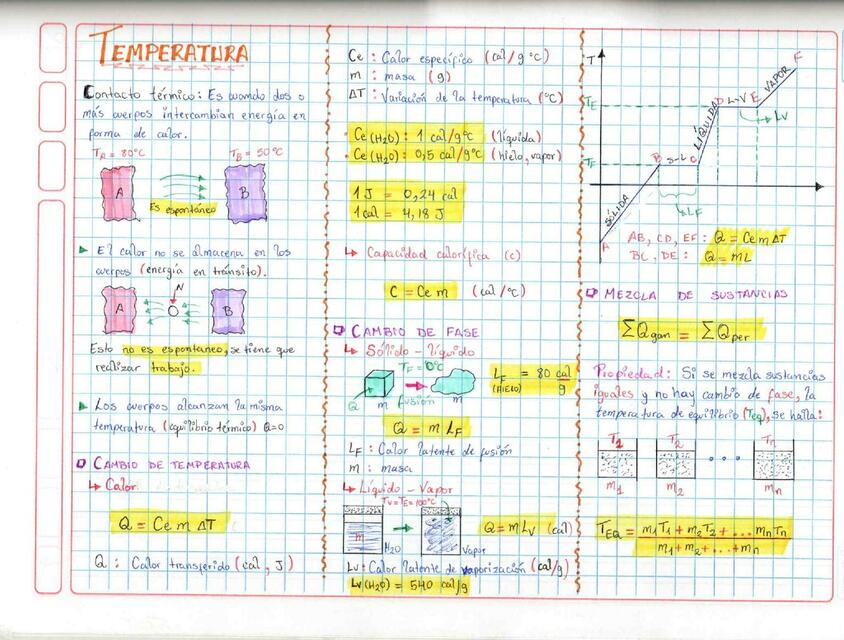 TEMPERATURA
Contacto térmico: Es cuando dos o
más cuerpos intercambian energía en
forma de calor.
TA = 80°C
TB = 50°C
A
B
Es espontáneo
► El calor no se almacena en los
cuerpos (energía en tránsito).
N
A
B
Esto no es espontaneo, se tiene que
realizar trabajo.
► Los cuerpos alcanzan la misma
temperatura (equilibrio térmico) Q=0
CAMBIO DE TEMPERATURA
↳ Calor
Q = Ce m ΔT
Q : Calor transferido (cal, J)
Ce : Calor específico (cal/g °C)
m : masa (g)
ΔT : Variación de la temperatura (°C)
• Ce(H2O): 1 cal/g°C (líquida)
• Ce(H2O): 0,5 cal/g°C (hielo, vapor)
1 J = 0,24 cal
1 cal = 4,18 J
↳ Capacidad calorífica (c)
C = Ce m (cal/°C)
CAMBIO DE FASE
↳ Sólido - líquido
TF = 0°C
Q
m
fusión
m
LF = 80 cal/g
(HIELO)
Q = m LF
LF : Calor latente de fusión
m : masa
↳ Líquido - Vapor
TV=TE=100°C
m
H2O
Vapor
Q = m LV (cal)
LV: Calor latente de vaporización (cal/g)
LV(H2O) = 540 cal/g
T
TE
TF
A
SÓLIDA
B
S-L
C
LÍQUIDA
D
L-V
E
VAPOR
F
LV
LF
AB, CD, EF : Q = Ce m ΔT
BC, DE : Q = mL
MEZCLA DE SUSTANCIAS
ΣQ gan = ΣQ per
Propiedad: Si se mezcla sustancias
iguales y no hay cambio de fase, la
temperatura de equilibrio (Teq), se halla:
T1 T2 ... Tn
m1 m2 mn
TEQ = m1T1 + m2T2 + ... mnTn / m1 + m2 + ... + mn